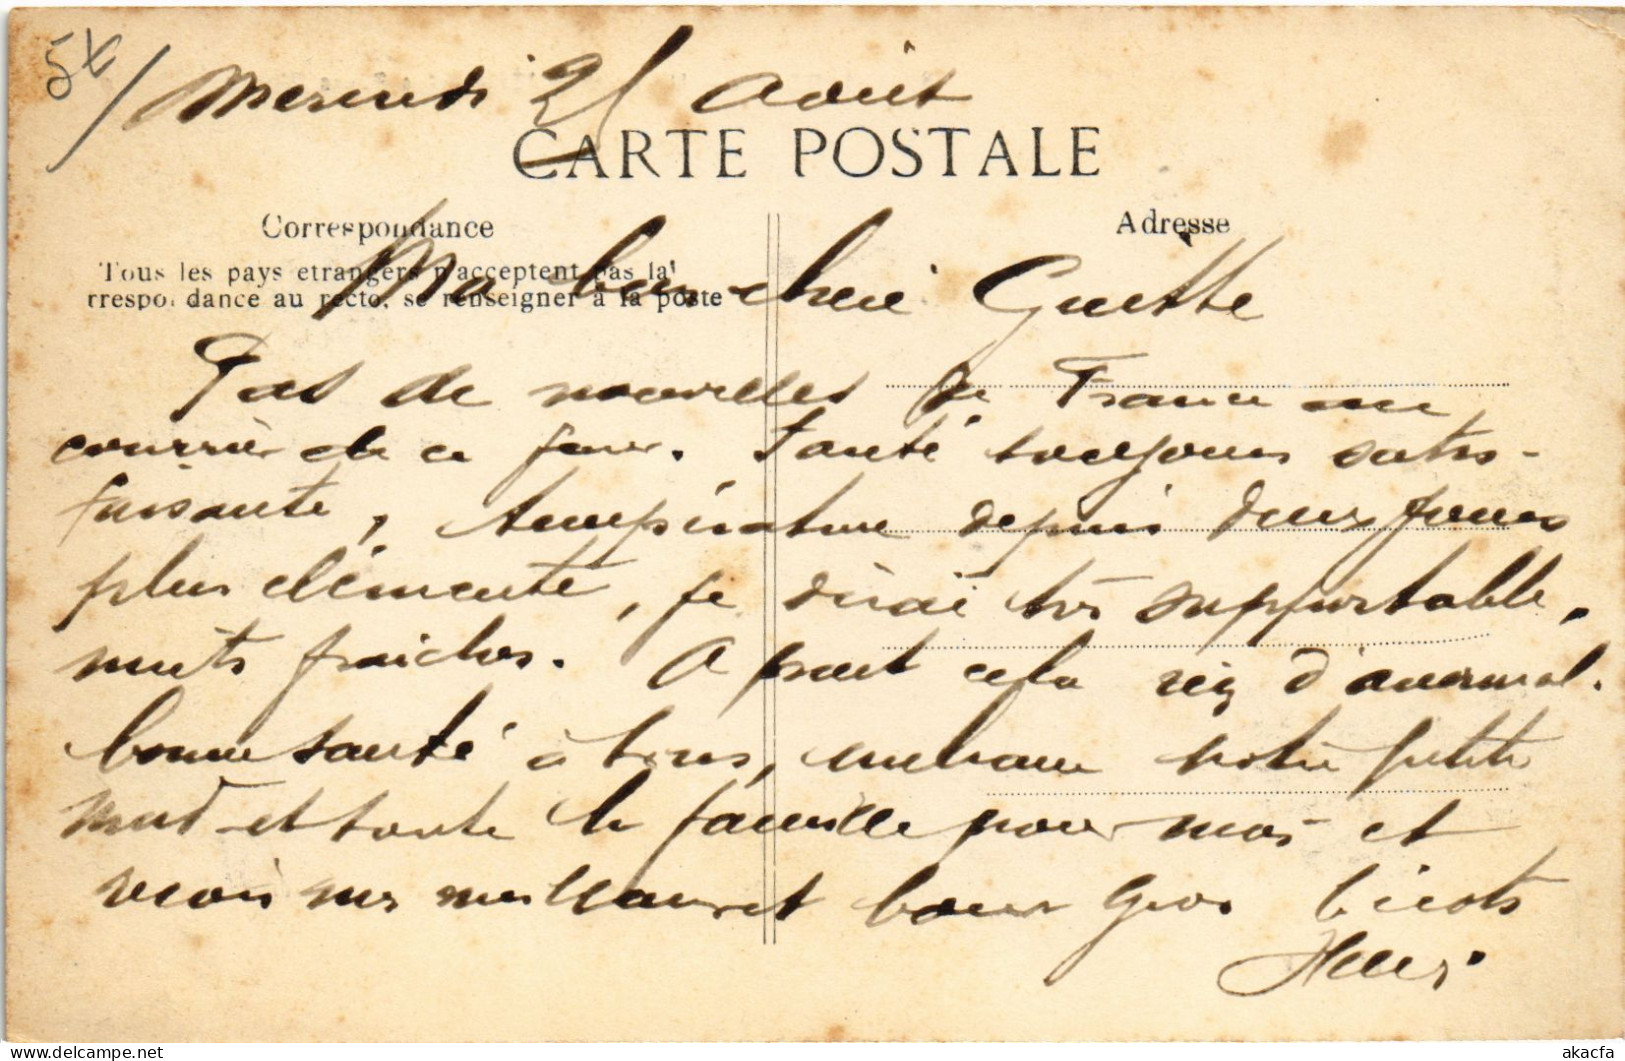 5€
Mercredi 21 Août
CARTE POSTALE
Correspondance
Adresse
Tous les pays etrangers n'acceptent pas la
rrespondance au recto, se renseigner à la poste
Ma bonne chérie Guette
Pas de nouvelles de France au
courrier de ce jour. Santé toujours satis-
faisante, température depuis deux jours
plus clémente, je dirai très supportable,
nuits fraiches. A part cela rien d'anormal.
bonne santé à tous, embrasse notre petite
et toute la famille pour moi et
reçois mes meilleurs et bons gros bécots
Henri
akacfa